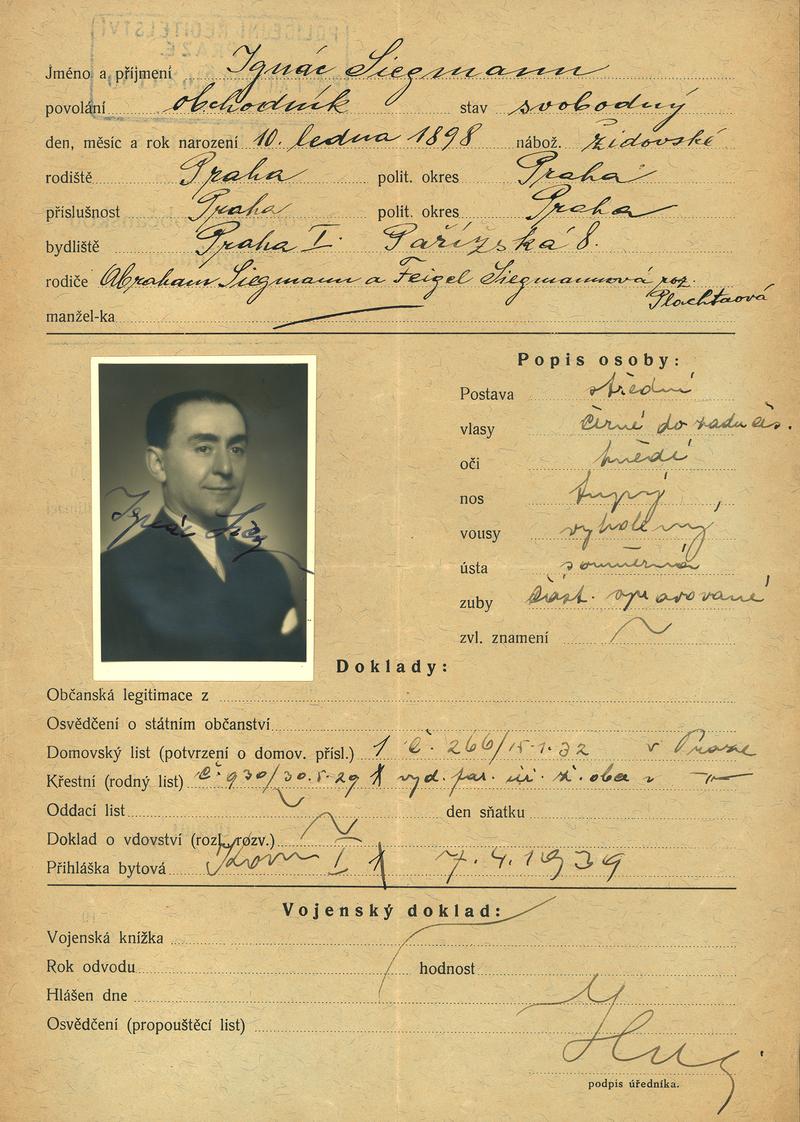 POLICEJNÍ ŘEDITELSTVÍ
Jméno a příjmení Ignác Siegmann
povolání obchodník stav svobodný
den, měsíc a rok narození 10. ledna 1898 nábož. židovské
rodiště Praha polit. okres Praha
příslušnost Praha polit. okres Praha
bydliště Praha I. Pařížská 8.
rodiče Abraham Siegmann a Feigel Siegmannová roz.
Plachtaová
manžel-ka
Popis osoby:
Postava střední
vlasy černé do
oči hnědé
nos tupý
vousy vyholený
ústa souměrná
zuby část. spravované
zvl. znamení
Ignác
Doklady:
Občanská legitimace z
Osvědčení o státním občanství
Domovský list (potvrzení o domov. přísl.) 1 č. 266/15.1.32 v Praze
Křestní (rodný list) č. 930/30.5.29 1 vyd. ž. obce v
Oddací list den sňatku
Doklad o vdovství (rozl., rozv.)
Přihláška bytová I 1 7.4.1939
Vojenský doklad:
Vojenská knížka
Rok odvodu hodnost
Hlášen dne
Osvědčení (propouštěcí list)
podpis úředníka.